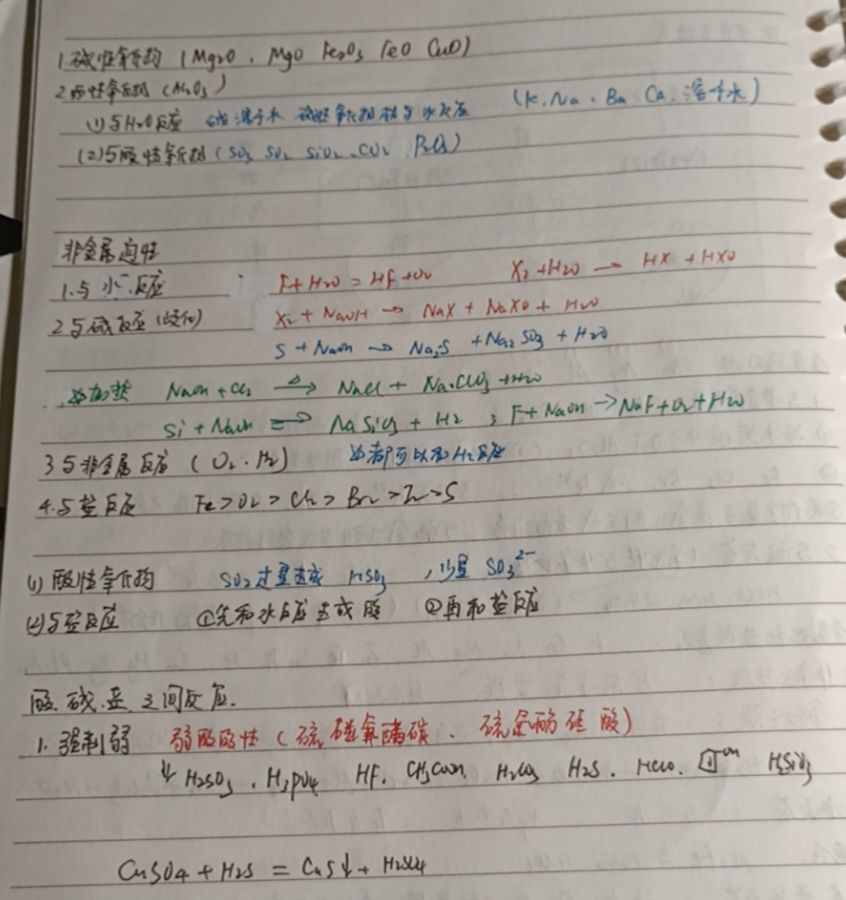 1.碱性氧化物 (Mg2O、MgO Fe2O3 FeO CuO)
2.两性氧化物 (Al2O3)
(1)与H2O反应 碱溶于水 碱性氧化物才与水反应 (K、Na、Ba Ca、溶于水)
(2)与酸性氧化物 (SO3 SO2 SiO2、CO2 P2O5)
非金属通性
1.与水反应 F+H2O = HF+O2 X2+H2O → HX + HXO
2.与碱反应(歧化) X2+NaOH → NaX + NaXO + H2O
S+NaOH → Na2S + Na2SO3 + H2O
加热 NaOH+Cl2 △→ NaCl + NaClO3 + H2O
Si+NaOH → NaSiO3 + H2 ; F+NaOH → NaF+O2+H2O
3.与非金属反应 (O2、H2) 都可以和H2反应
4.与盐反应 F2>O2>Cl2>Br2>I2>S
(1)酸性氧化物 SO2过量生成 HSO3 ,少量 SO3²⁻
(2)与盐反应 ①先和水反应生成酸 ②再和盐反应
酸、碱、盐之间反应.
1.强制弱 弱酸酸性 (硫磷氟醋碳、硫氯酚硅酸)
↓ H2SO3、H3PO4 HF、CH3COOH、H2CO3 H2S、HClO、OH HSiO3
CuSO4 + H2S = CuS↓ + H2SO4